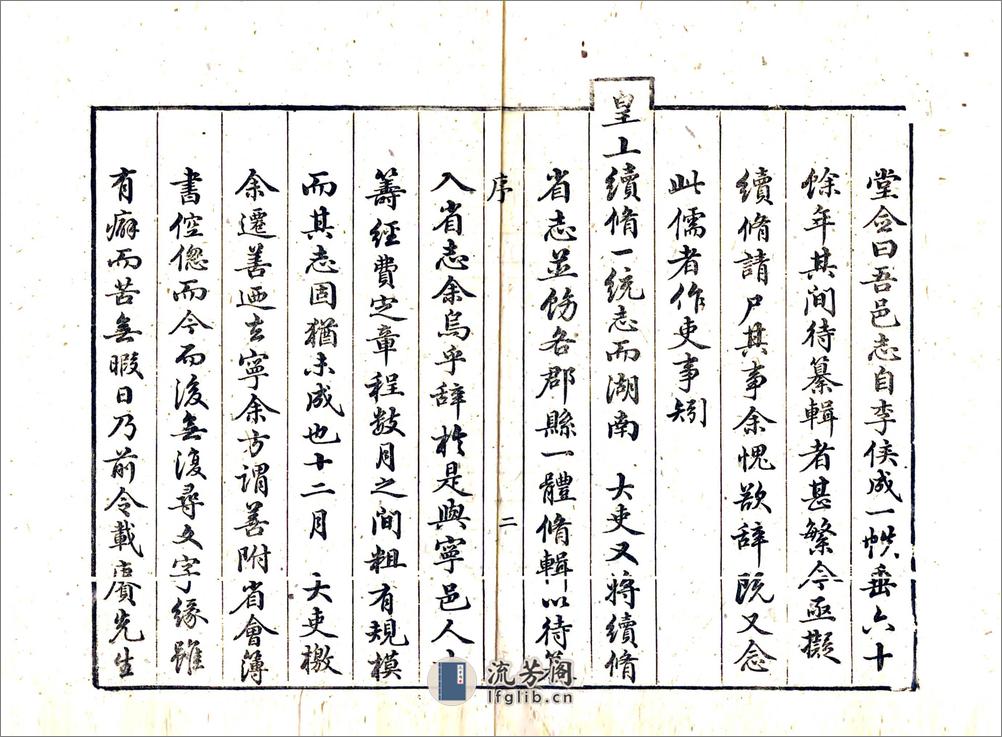 堂僉曰吾邑志自李侯成一帙垂六十
餘年其间待纂輯者甚繁今亟擬
續脩請尸其事余愧欲辭既又念
此儒者作吏事矧
皇上續脩一統志而湖南 大吏又将續脩
省志並飭各郡縣一體脩輯以待
入省志余烏乎辭扵是與寧邑人
籌經費定章程数月之间粗有規模
而其志固猶未成也十二月 大吏檄
余遷善廼去寧余方謂善附省會簿
書倥偬而今而後無復尋文字緣雖
有癖而苦無暇日乃前令載賡先生
序
二
流芳閣
lfglib.cn